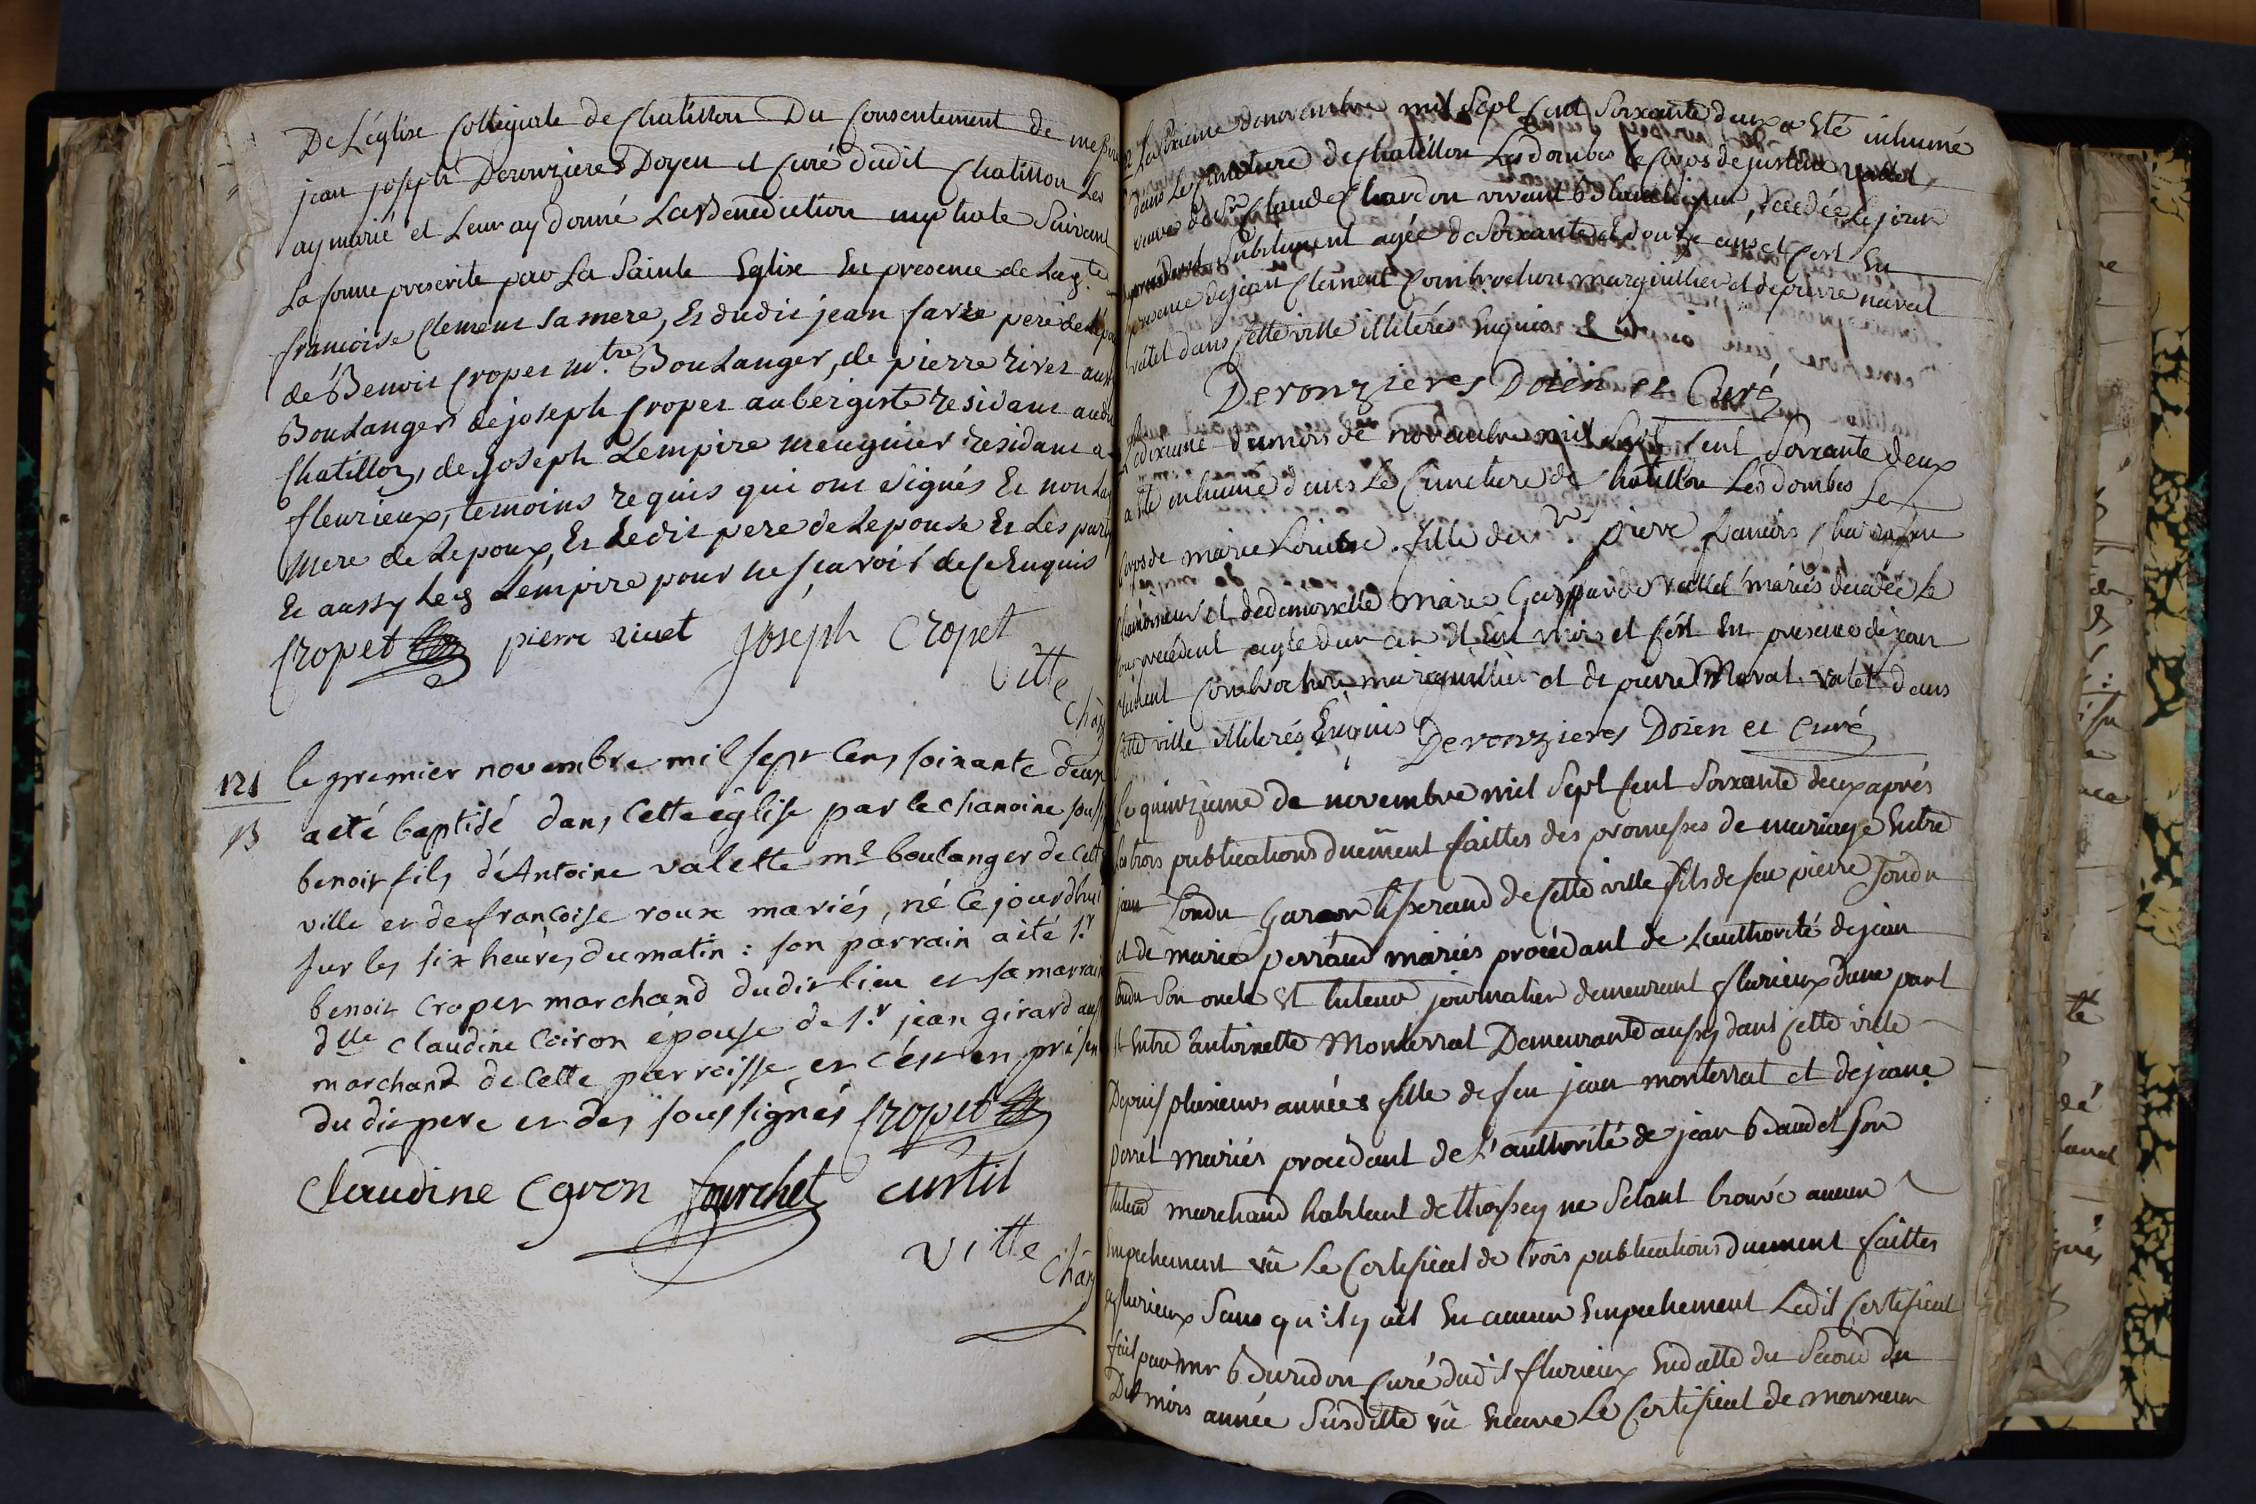 De Léglise Collegiale de Chatillon Du Consentement de messire
jean joseph Deronzieres Doyen et Curé dudit Chatillon Les
ay marié et Leur ay donné La Benediction nuptiale Suivant
La forme prescrite par La Sainte Eglise En presence de Lad.te
francoise Clement sa mere, Et dudit jean favre pere de
de Benoit Cropet m.tre Boulanger, de pierre rivet aussy
Boulanger de joseph Cropet aubergiste residant audit
Chatillon, de joseph Lempire meugnier residant a
fleurieux, temoins requis qui ont signés Et non La
Mere de Lepoux, Et Ledit pere de Lepouse Et Les parties
Et aussy Led Lempire pour ne sçavoir de ce Enquis
Cropet pierre rivet Joseph Cropet
Vitte
Chan
121
B
le premier novembre mil sept Cens soixante deux
a eté baptisé dans Cette église par le chanoine sous
benoit fils d'Antoine valette m.e boulanger de cette
ville et de francoise roux mariés, né Ce jourd'hui
sur les six heures du matin : son parrain a eté s.r
benoit Cropet marchand dudit lieu et sa marraine
d.lle Claudine Coiron épouse de s.r jean girard aussi
marchand de Cette parroisse, et c'est en présence
dudit pere et des soussignés Cropet
Claudine Coron fourchet Curtil
Vitte
Chan
Le Sixieme de novembre mil Sept Cent Soixante deux a Eté inhumé
dans Le Cimetiere de Chatillon Les dombes Le Corps de justine vallet
veuve de S.r Claude Chardon vivant decedée Le jour
precedent Subitement agée de Soixante et douze ans et C'est En
presence de jean Clement Combrochon marguillier et de pierre naval
valet dans Cette ville illiterés Enquis
Deronzieres Doien et Curé
Le dixieme du mois de novembre mil Sept Cent Soixante deux
a eté inhumé dans Le Cimetiere de Chatillon Les dombes Le
Corps de marie Louise fille de S.r pierre
et de demoiselle Marie Gaspparde vallet mariés decedée Le
jour precedent agée d'un an et Six mois et C'est En presence de jean
Clement Combrochon marguillier et de pierre Naval valet dans
Cette ville illiterés Enquis Deronzieres Doien et Curé
Le quinzieme de novembre mil Sept Cent Soixante deux aprés
Les trois publications duëment faittes des promesses de mariage Entre
jean Tondu Garcon tisserand de Cette ville fils de feu pierre Tondu
et de marie perraud mariés procedant de Lauthorité de jean
tondu Son oncle Et tuteur journalier demeurant a flurieux d'une part
et Entre Antoinette Monterrat Demeurante aussy dans Cette ville
Depuis plusieurs années fille de feu jean monterrat et de jeane
perret mariés procedant de L'authorité de jean Baudet Son
tuteur marchand habitant de thoissey ne S'etant trouvé aucun
Empechement vû Le Certificat de trois publications duement faittes
a flurieux Sans qu'il y ait Eu aucun Empechement Ledit Certificat
fait par mr Buridon Curé dudit flurieux En datte du Second du
Dit mois année Susditte vû Encore Le Certificat de monsieur